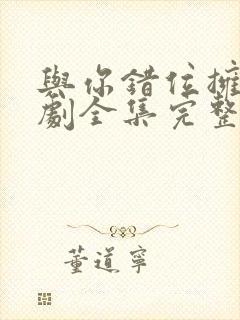 與你錯位擁
劇全集完整
董道寧